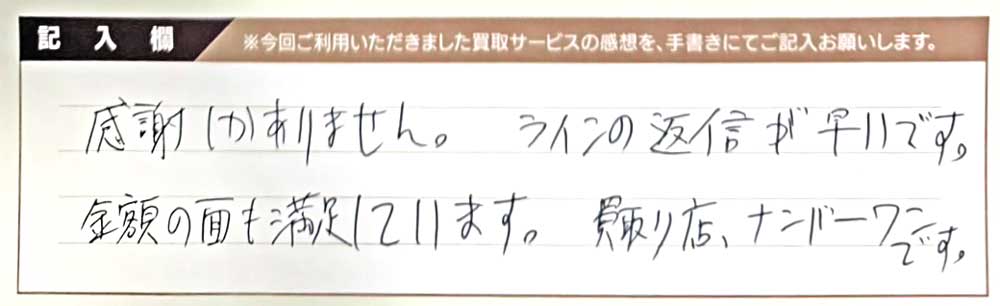 記入欄 ※今回ご利用いただきました買取サービスの感想を、手書きにてご記入お願いします。
感謝しかありません。 ラインの返信が早いです。
金額の面も満足しています。 買取り店、ナンバーワンです。